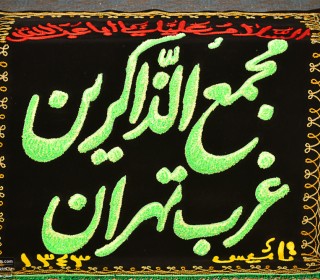 السلام علیک یا ابا عبدالله
مجمع الذاکرین
غرب تهران
تاسیس ۱۳۴۳